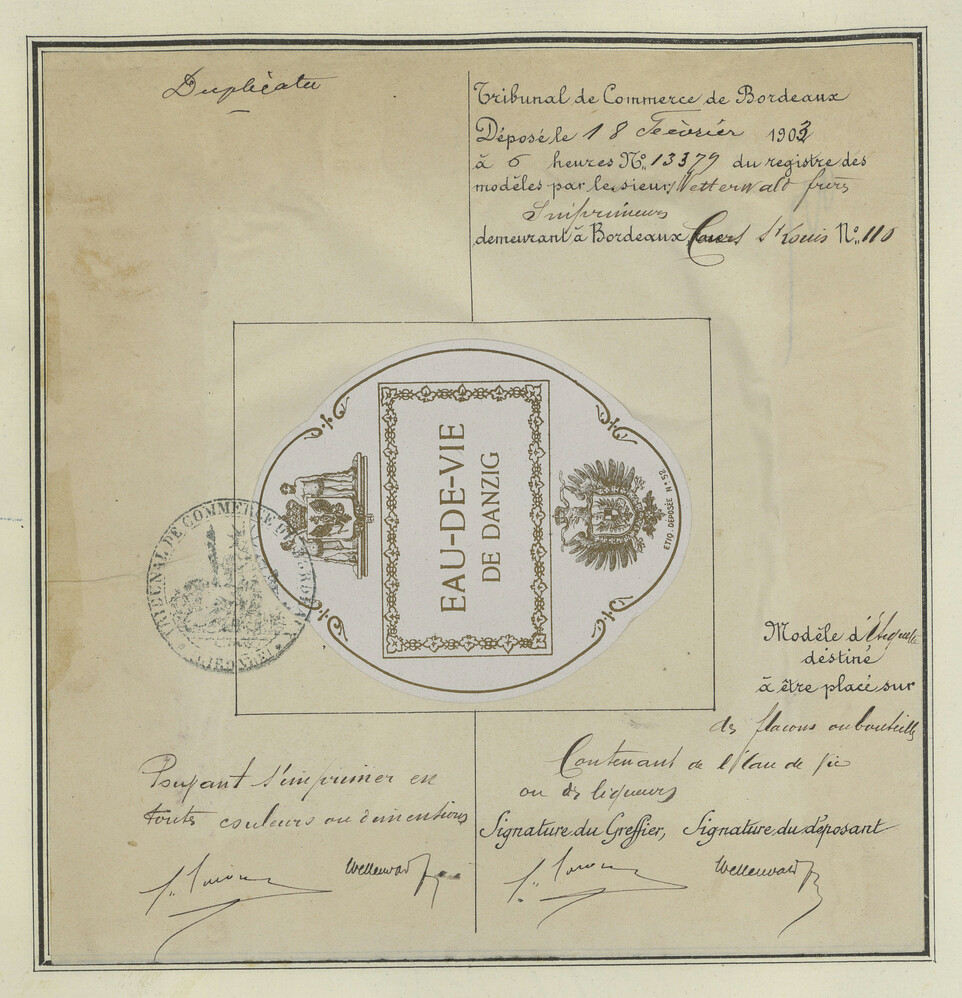 Duplicata
Tribunal de Commerce de Bordeaux
Déposé le 18 Février 1903
à 6 heures No. 13379 du registre des
modèles par le sieur, Wetterwald frères
Imprimeurs
demeurant à Bordeaux, Cours St Louis No. 110
EAU-DE-VIE
DE DANZIG
ETIQ. DÉPOSÉE No. 52.
TRIBUNAL DE COMMERCE DE BORDEAUX
(GIRONDE)
Modèle d'Etiquette
destiné
à être placé sur
des flacons ou bouteilles
Contenant de l'Eau de Vie
ou des liqueurs
Pouvant s'imprimer en
toutes couleurs ou dimentions
Signature du Greffier, Signature du déposant
Wetterwald
Wetterwald